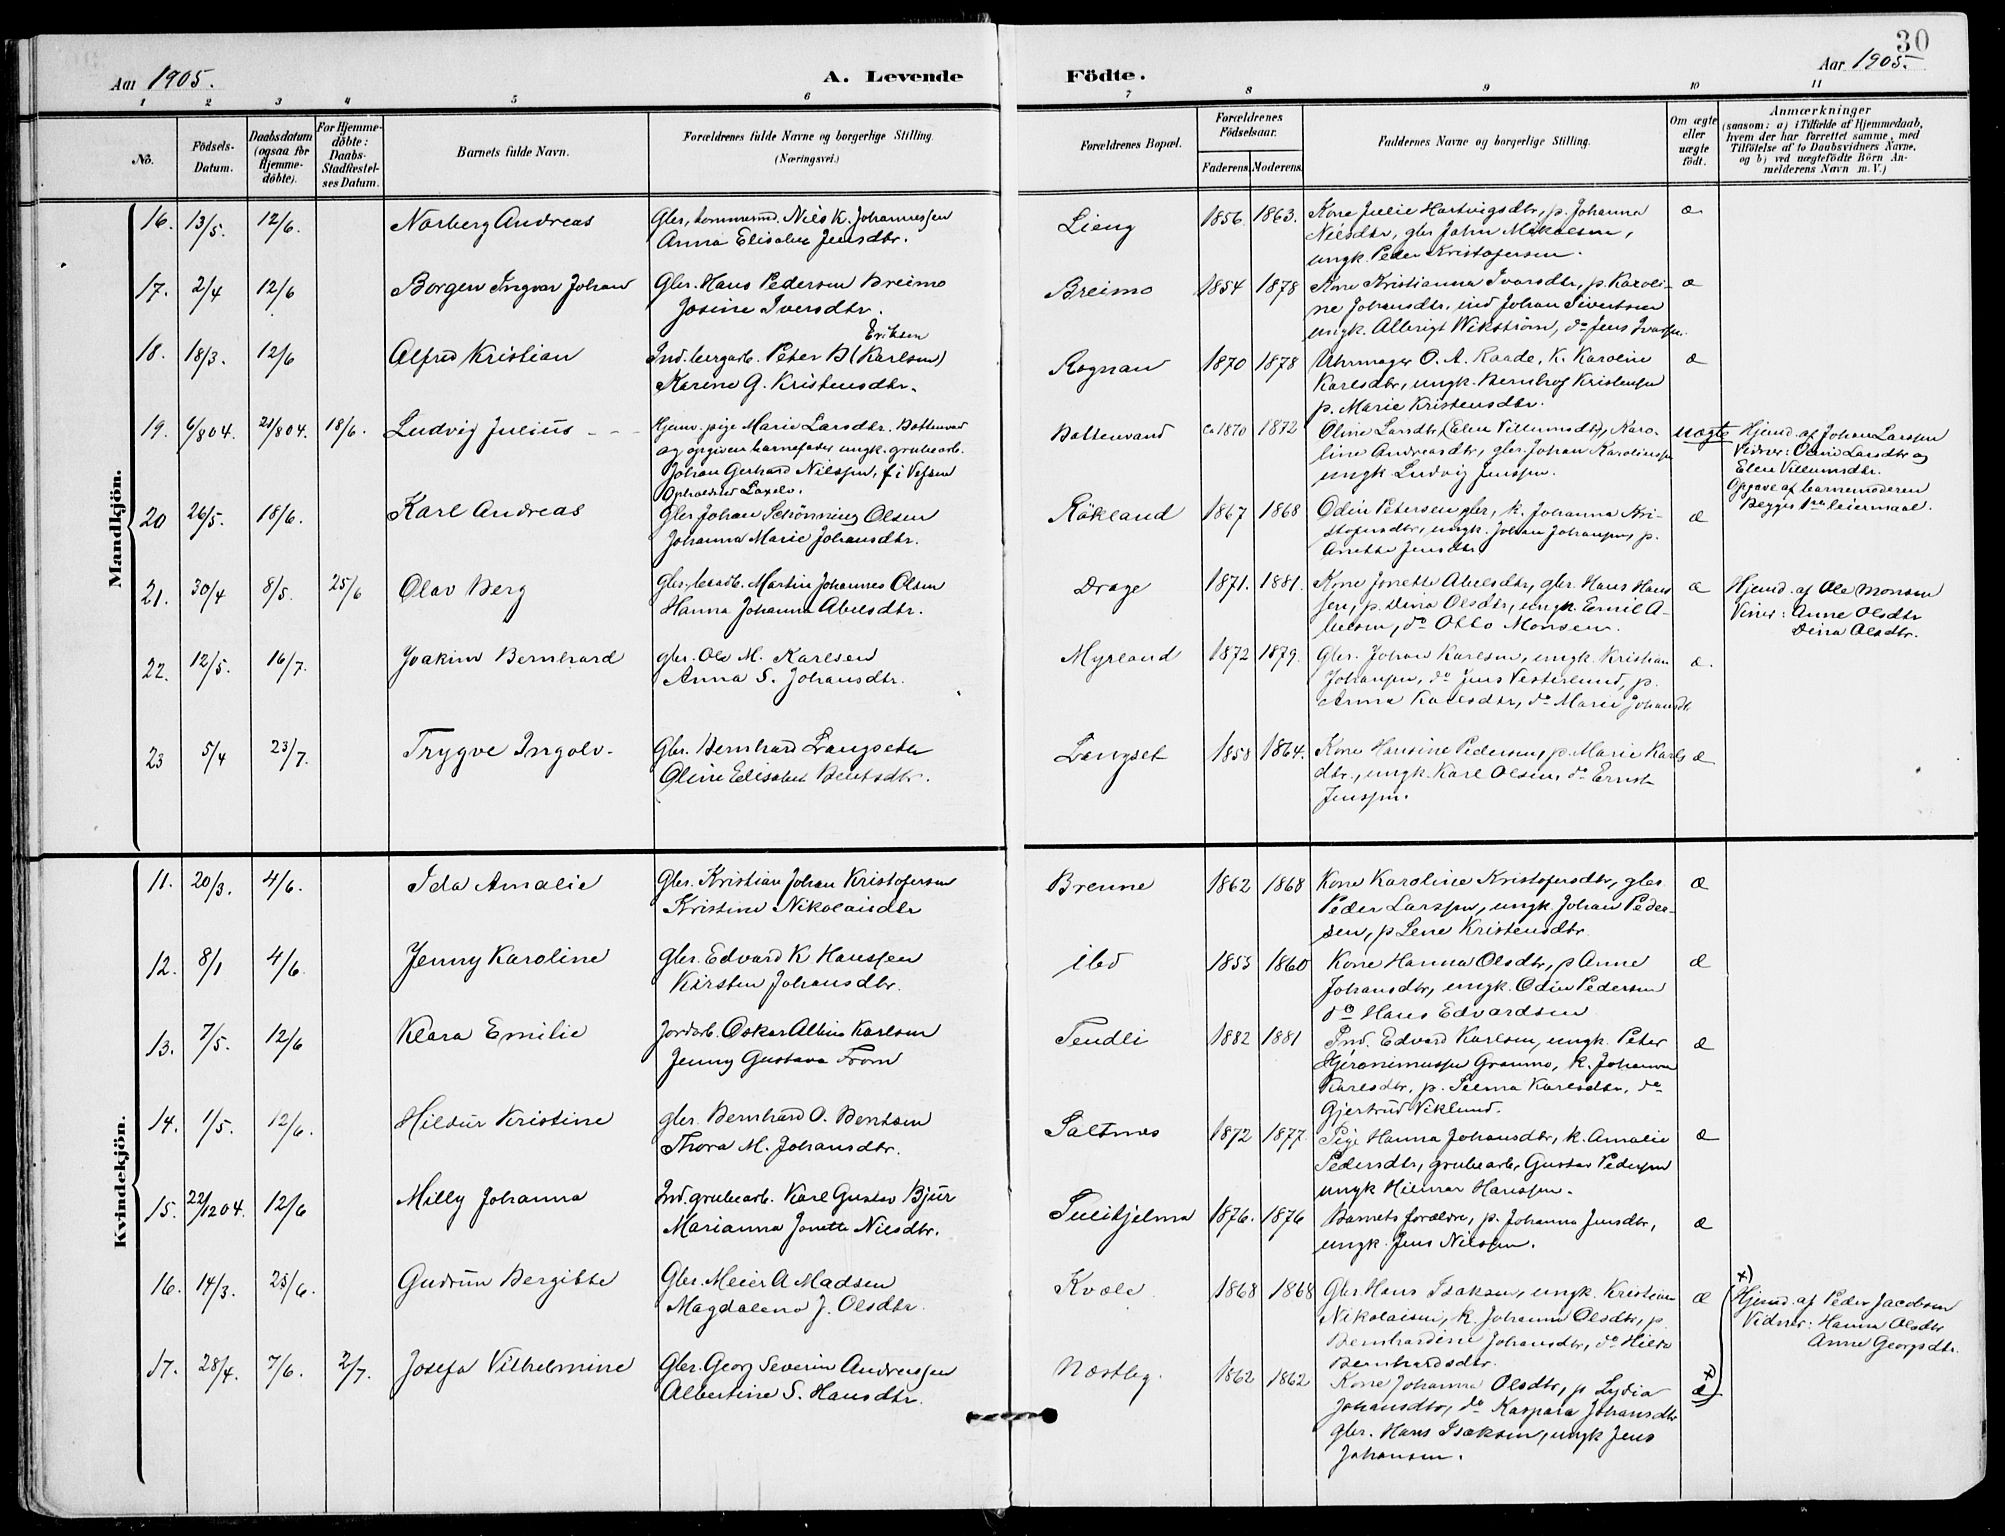 30
Aar 1905. A. Levende Födte. Aar 1905.
1 2 3 4 5 6 7 8 9 10 11
No. Födsels-Datum. Daabsdatum (ogsaa for Hjemme-döbte). For Hjemme-döbte: Daabs-Stadfæstel-ses Datum. Barnets fulde Navn. Forældrenes fulde Navne og borgerlige Stilling. (Næringsvei.) Forældrenes Bopæl. Forældrenes Födselsaar. Faderens. Moderens. Faddernes Navne og borgerlige Stilling. Om ægte eller uægte födt. Anmærkninger
(saasom: a) i Tilfælde af Hjemmedaab, hvem der har forrettet samme, med Tilföielse af to Daabsvidners Navne, og b) ved uægtefödte Börn Anmelderens Navn m. V.)
Mandkjön.
16. 13/5. 12/6. Norberg Andreas Gbr, Nils K. Johannessen Lieng 1856 1863. Kone Julie Hartvigsdtr, p. Johanna æ
Anna Elisabet Jensdtr. Nilsdtr, gbr John Mikalsen,
ungk. Peder Kristofersen.
17. 2/4 12/6 Borgen Ingvar Johan Gbr. Hans Pedersen Breimo Breimo 1854 1878 Kone Kristianna Ivarsdtr, p. Karoli- æ
Josine Iversdtr. ne Johansdtr, ind Johan Sivertsen
ungk. Albrigt Wikström, do Jens Ivarsen.
Eriksen
18. 18/3. 12/6 Alfred Kristian Ind. bergarb. Peter B (Karlsen) Rognan 1870 1878 Uhrmager O. A. Raade, k. Karoline æ
Karine G. Kristensdtr. Karlsdtr, ungk. Bernhof Kristensen
p. Marie Kristensdtr.
19. 6/8 04. 21/8 04. 18/6. Ludvig Julius Hjemv. pige Marie Larsdtr. Bottenvand Bottenvand ca 1870 1872 Oline Larsdtr, Elen Villumsdtr, Karo- uægte Hjemd. af Johan Larssen
og opgiven barnefader ungk. grubearb. line Andreasdtr, gbr Johan Karolinssen Vidner: Oline Larsdtr og
Johan Gerhard Nilssen, f. i Vefsen ungk Ludvig Jenssen. Elen Villumsdtr.
Opholdsted Laxelv. Opgave af barnemoderen
Begges 1ste leiermaal.
20 26/5. 18/6. Karl Andreas Gbr Johan Schönning Olsen Rökland 1867 1868 Odin Petersen gbr, k. Johanna Kri- æ
Johanna Marie Johansdtr. stofersdtr, ungk. Johan Johansen, p.
Anette Jensdtr
21. 30/4 8/5. 25/6 Olav Berg Martin Johannes Olsen Drage 1871. 1881. Kone Jonette Abelsdtr, gbr Hans Hans- æ Hjemd. af Ole Monsen
Hanna Johanna Abelsdtr. sen, p. Dina Olsdtr, ungk. Emil A- Viner: Anne Olsdtr
belsen, do Otto Monsen. Dina Olsdtr.
22. 12/5. 16/7. Joakim Bernhard gbr. Ole M. Karlsen Myrland 1872 1879. Gbr. Johan Karlsen, ungk. Kristian æ.
Anna S. Johansdtr. Johansen, do Jens Vesterlund, p.
Anna Karlsdtr, do Marie Johansdtr.
23 5/4 23/7. Trygve Ingolv. Gbr. Bernhard Langseth Langset 1858 1864. Kone Hansine Pedersen, p. Marie Karls æ
Oline Elisabet Bentsdtr. dtr., ungk. Karl Olsen, do Ernst
Jenssen.
Kvindekjön.
11. 20/3. 4/6. Ida Amalie Gbr. Kristian Johan Kristofersen Brenne 1862 1868 Kone Karoline Kristofersdtr, gbr æ
Kristine Nikolaisdtr Peder Larssen, ungk. Johan Peder-
sen, p Lene Kristensdtr.
12. 8/1 4/6. Jenny Karoline gbr. Edvard K Hanssen ibd 1853 1860 Kone Hanna Olsdtr, p Anne æ
Kirsten Johansdtr. Johansdtr, ungk. Odin Pedersen
do Hans Edvardsen
13. 7/5. 12/6 Klara Emilie Jordarb. Oskar Albin Karlsen Tendli 1882 1881 Ind. Edvard Karlsen, ungk. Peter æ
Jenny Gustava From Hjeronimussen Granmo, k. Johanna
Karlsdtr, p. Selma Karlsdtr, do
Gjertrud Viklund.
14. 1/5. 12/6. Hildur Kristine gbr. Bernhard O. Bentsen Saltnes 1872 1877. Pige Hanna Johansdtr, k. Amalie æ
Thora M. Johansdtr. Pedersdtr, grubearb. Gustav Pedersen
ungk Hilmar Hanssen.
15. 22/12 04. 12/6 Milly Johanna Ind. grubearb. Karl Gustav Bjur Sulitjelma 1876. 1876 Barnets forældre, p. Johanna Jensdtr, æ
Marianna Jonette Nilsdtr. ungk. Jens Nilssen.
16. 14/3. 25/6. Gudrun Bergitte Gbr. Meier A Madsen Kvæle 1868 1868 Gbr Hans Isaksen, ungk. Kristian æ x)
Magdalena J. Olsdtr. Nikolaisen, k. Johanna Olsdtr, p. Hjemd. af Peder Jacobsen
Bernhardine Johansdtr, do Hilda Vidner: Hanna Olsdtr
Bernhardsdtr. Anne Georgsdtr.
17. 28/4. 7/6. 2/7. Josefa Vilhelmine Gbr. Georg Severin Andreassen Næstby. 1862 1862 Kone Johanna Olsdtr, p Lydia æ x)
Albertine S. Hansdtr. Johansdtr, do Kaspara Johansdtr
gbr. Hans Isaksen, ungk Jens
Johansen.